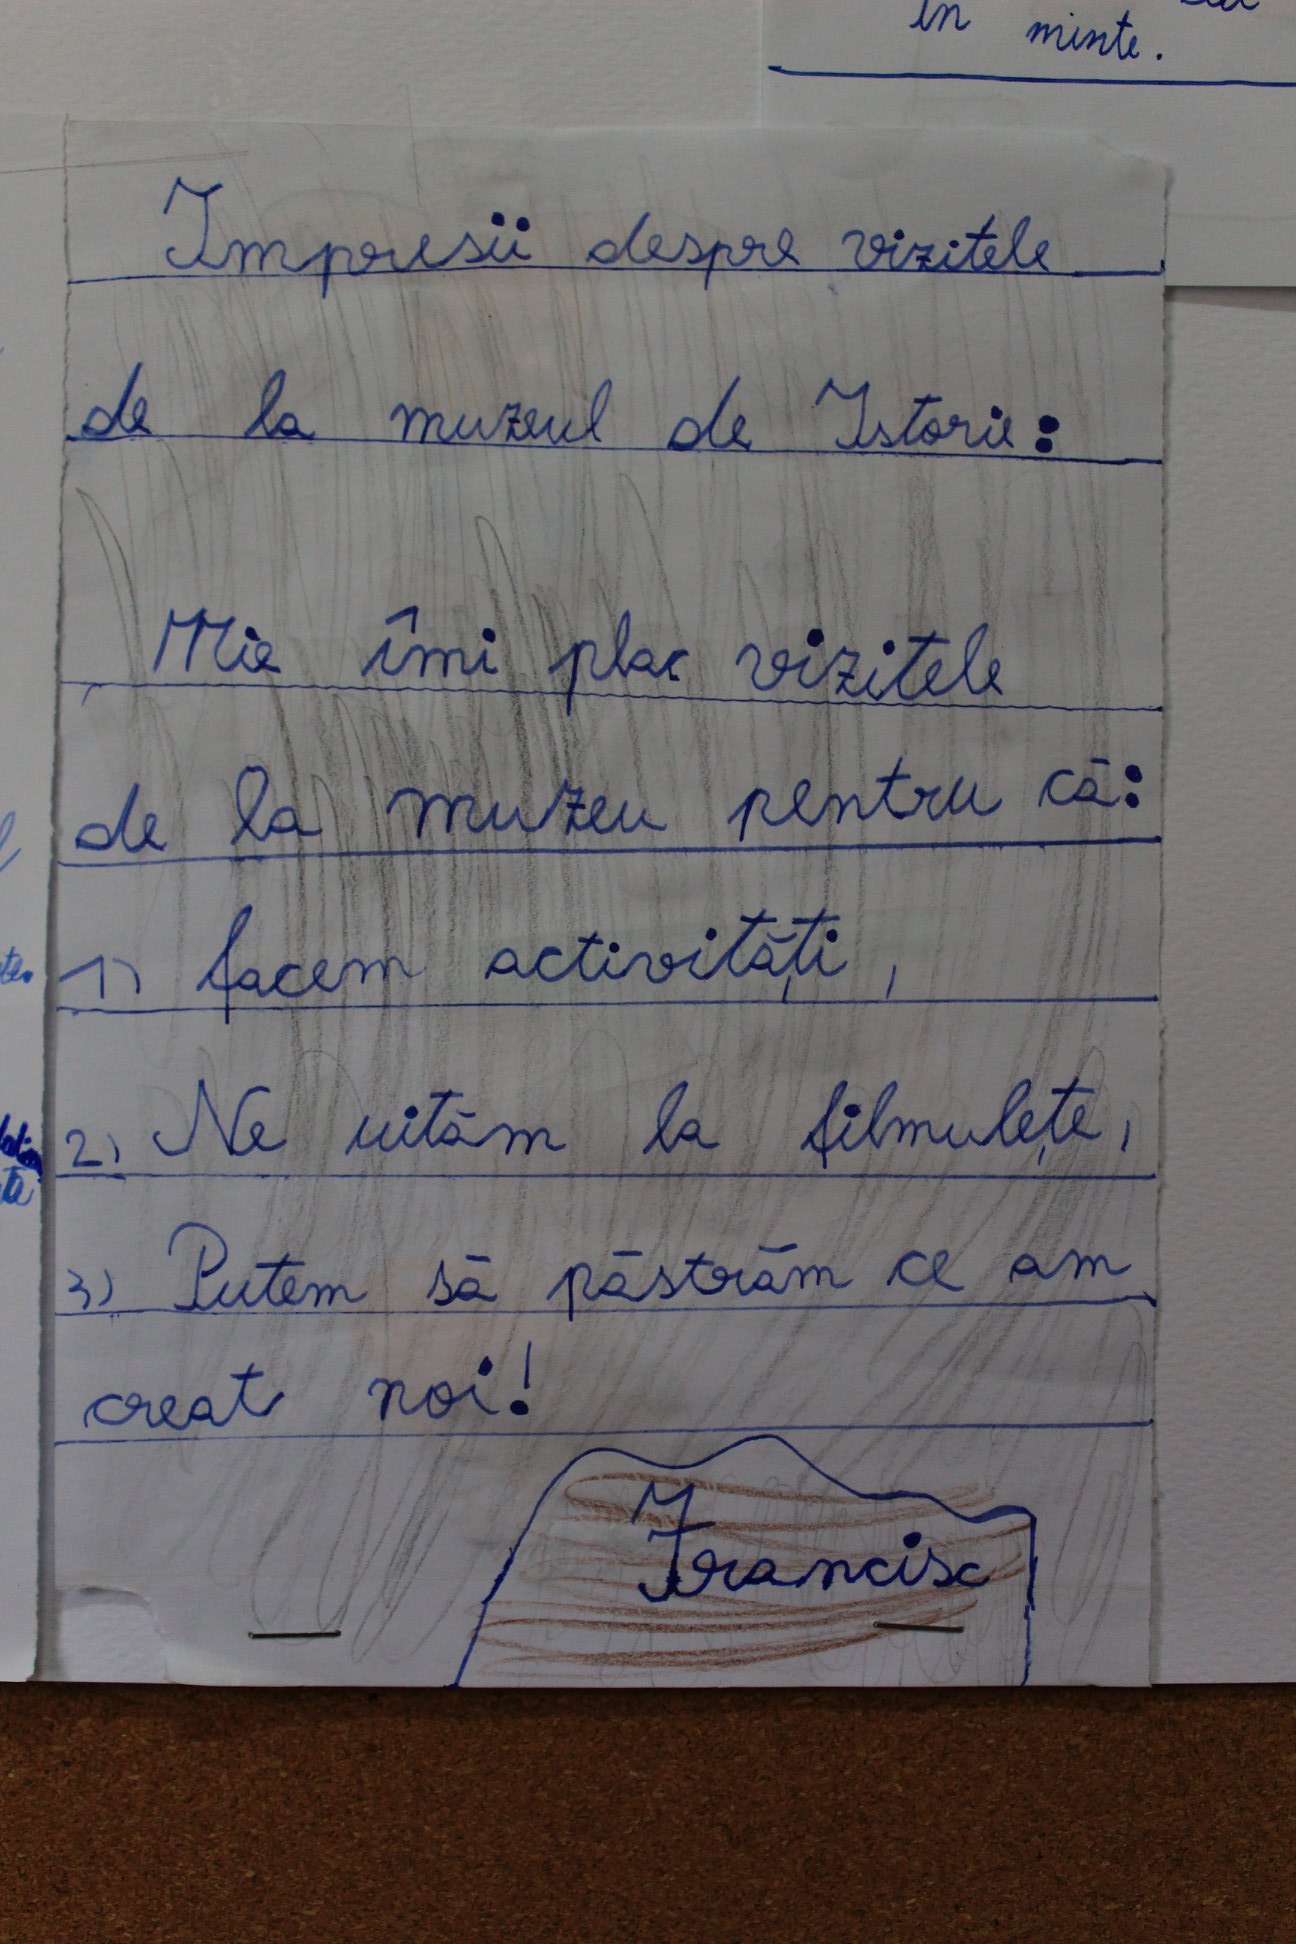 in
minte.
Impresii despre vizitele
de la muzeul de Istorie:
Mie îmi plac vizitele
de la muzeu pentru că:
1) facem activități,
2) Ne uităm la filmulețe,
3) Putem să păstrăm ce am
creat noi!
Francisc